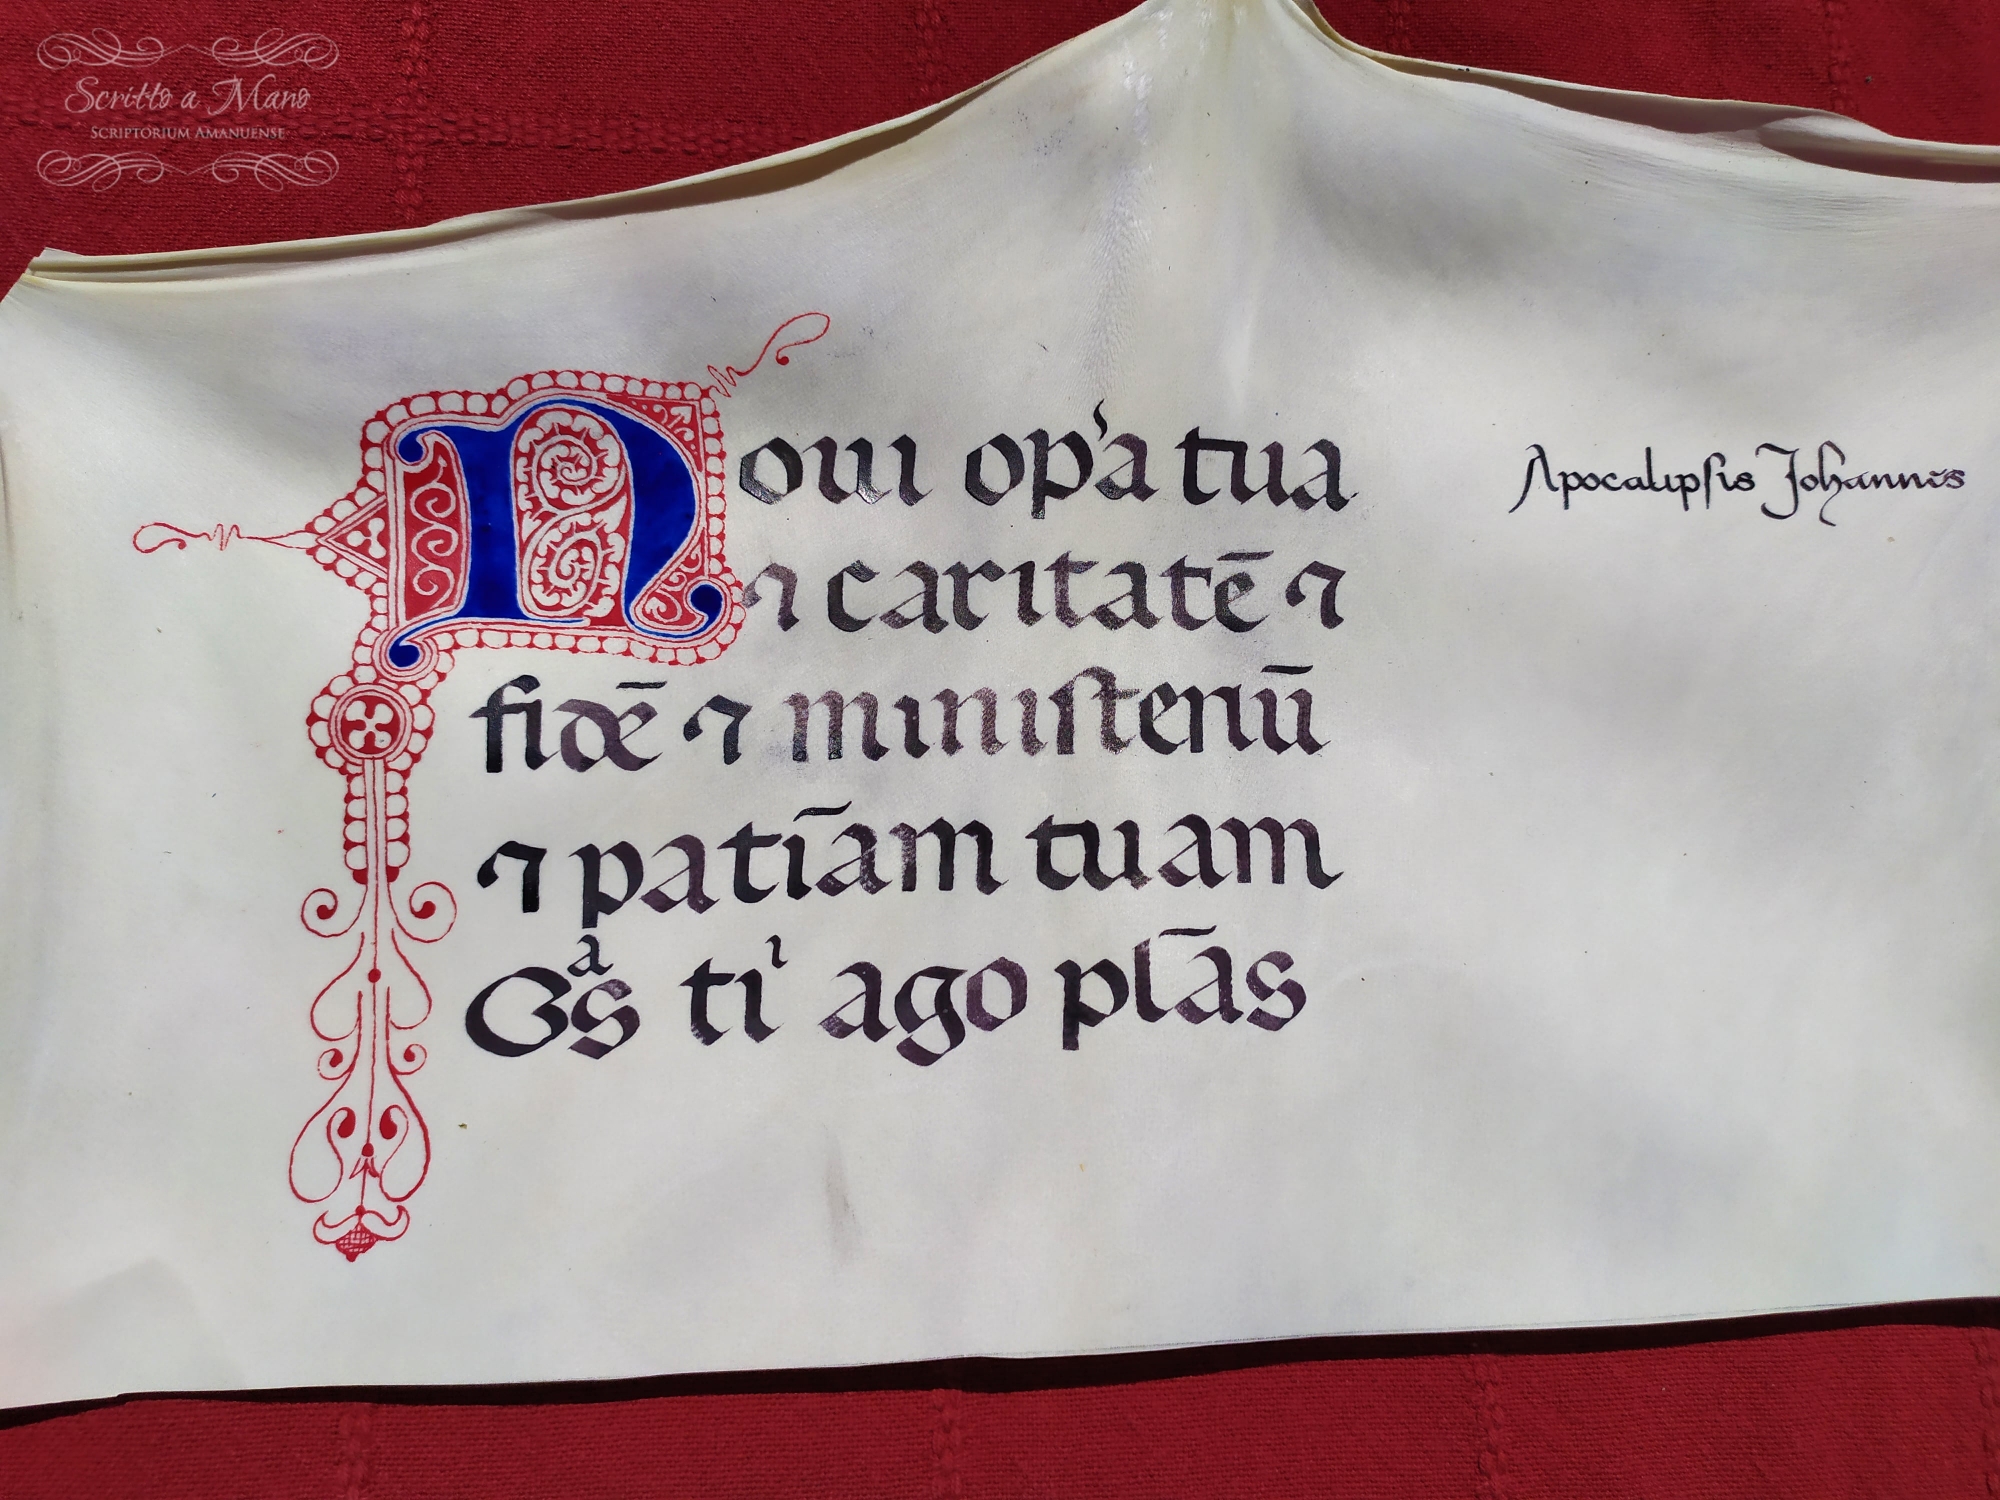 Scritto a Mano
SCRIPTORIUM AMANUENSE
Noui op'a tua
⁊ caritatē ⁊
fidē ⁊ miniſteriū
⁊ patīam tuam
Gᵃs tⁱ ago pl̄as
Apocalipſis Johannis